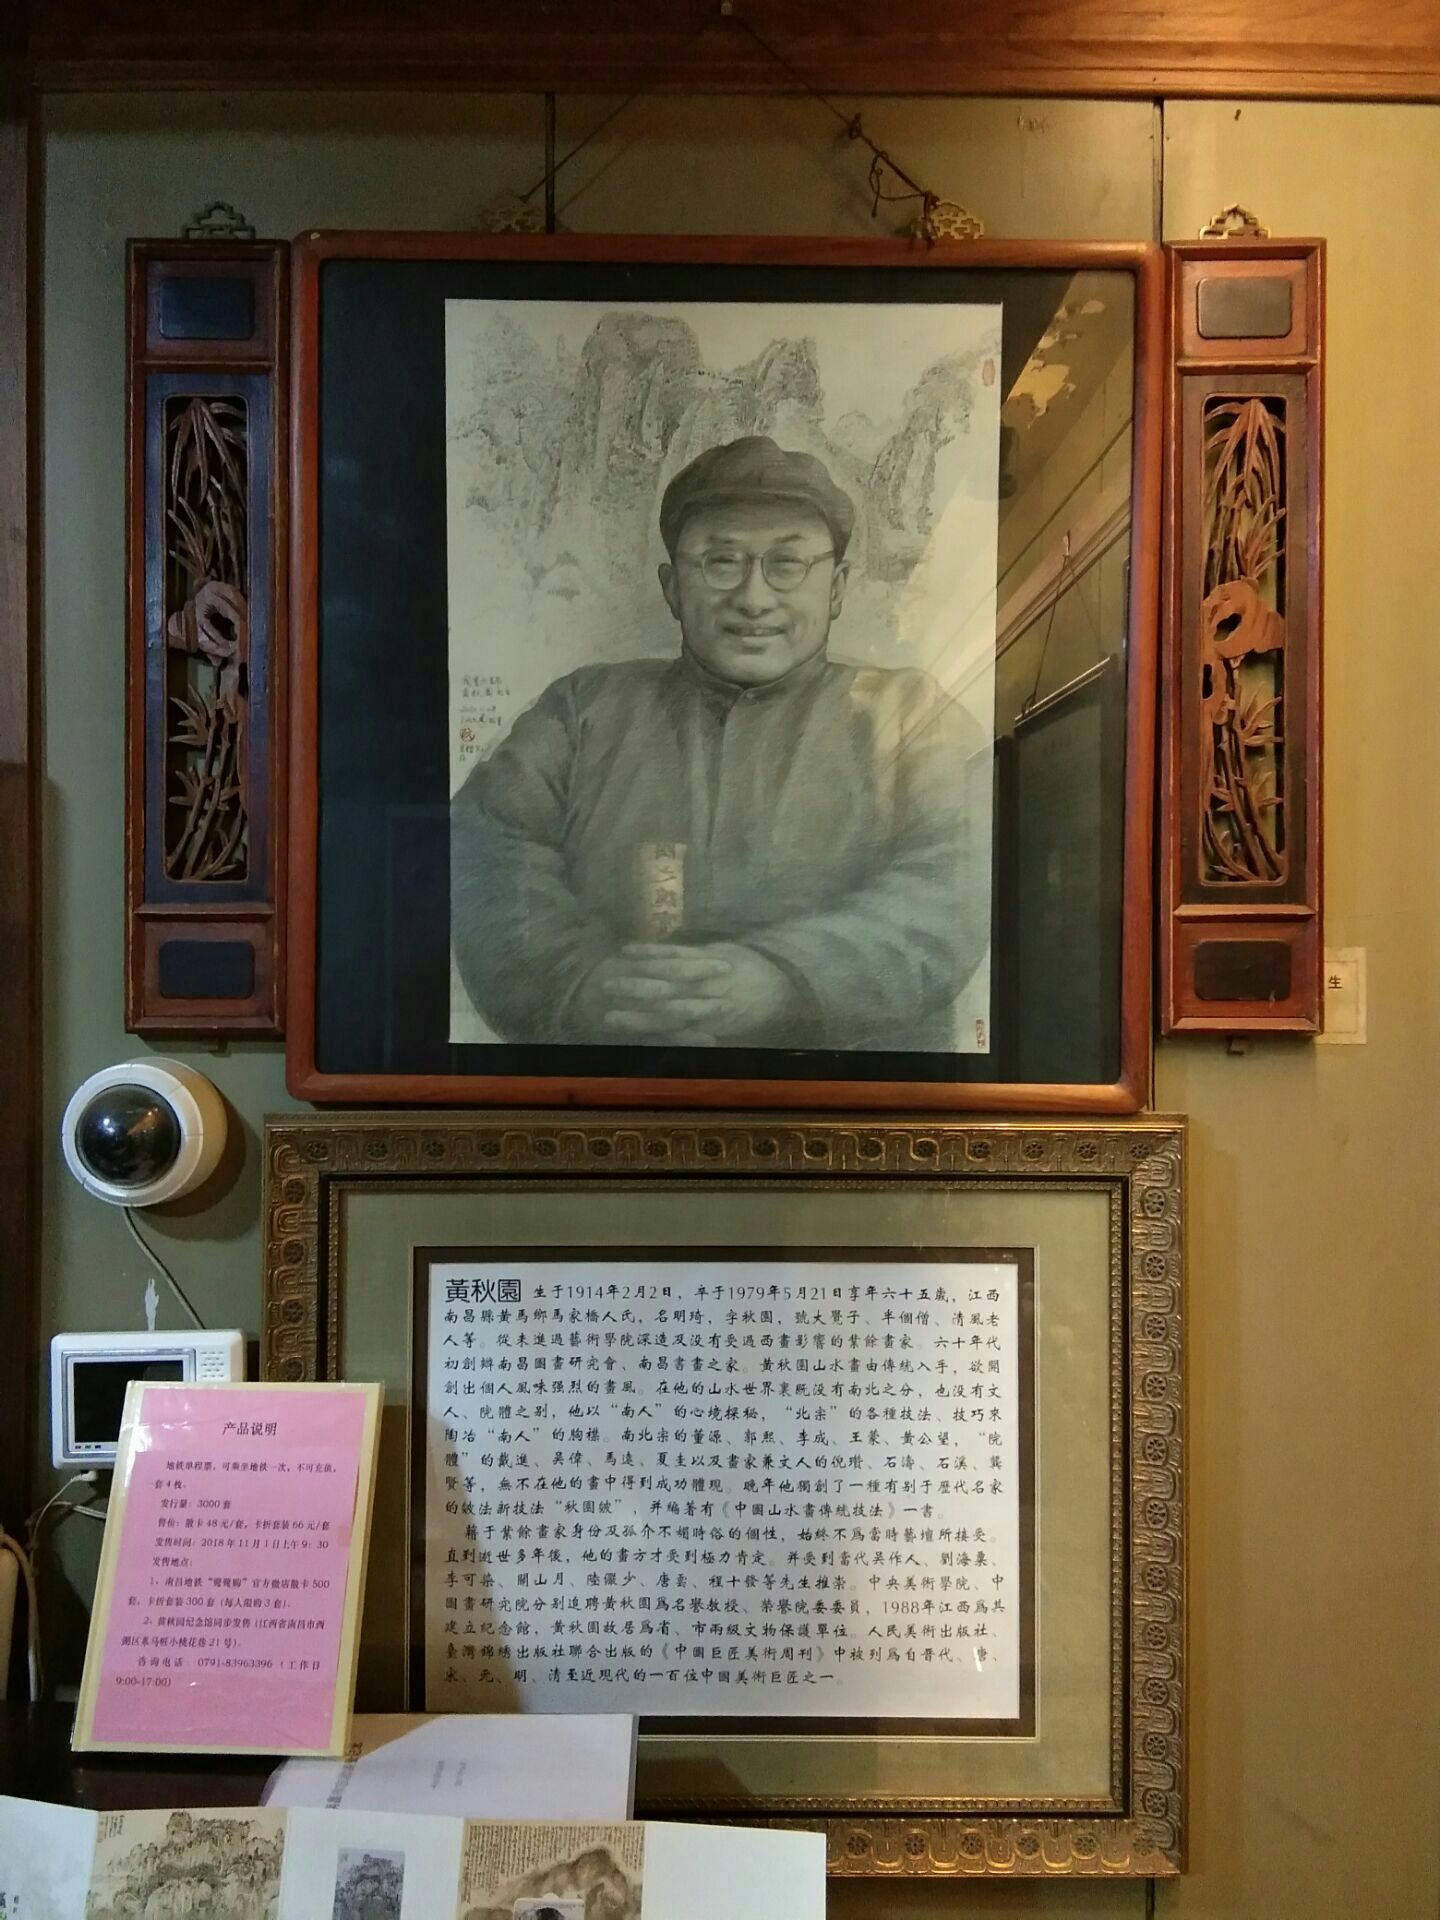 生
黃秋園 生于1914年2月2日，卒于1979年5月21日享年六十五歲，江西
南昌縣黃馬鄉馬家橋人氏，名明琦，字秋園，號大覺子、半個僧、清風老
人等。從未進過藝術學院深造及没有受過西畫影響的業餘畫家。六十年代
初創辦南昌國畫研究會、南昌書畫之家。黃秋園山水畫由傳統入手，欲開
創出個人風味强烈的畫風。在他的山水世界裏既没有南北之分，也没有文
人、院體之别，他以“南人”的心境探秘，“北宗”的各種技法、技巧來
陶冶“南人”的胸襟。南北宗的董源、郭熙、李成、王蒙、黃公望，“院
體”的戴進、吴偉、馬遠、夏圭以及畫家兼文人的倪瓚、石濤、石溪、龔
賢等，無不在他的畫中得到成功體現。晚年他獨創了一種有别于歷代名家
的皴法新技法“秋園皴”，并編著有《中國山水畫傳統技法》一書。
藉于業餘畫家身份及孤介不媚時俗的個性，始終不爲當時藝壇所接受。
直到逝世多年後，他的畫方才受到極力肯定。并受到當代吴作人、劉海粟、
李可染、關山月、陸儼少、唐雲、程十發等先生推崇。中央美術學院、中
國畫研究院分别追聘黃秋園爲名譽教授、榮譽院委委員，1988年江西爲其
建立紀念館，黃秋園故居爲省、市兩級文物保護單位。人民美術出版社、
臺灣錦綉出版社聯合出版的《中國巨匠美術周刊》中被列爲自晋代、唐、
宋、元、明、清至近現代的一百位中國美術巨匠之一。
产品说明
地铁单程票，可乘坐地铁一次，不可充值，
一套4枚。
发行量：3000套
售价：散卡48元/套，卡折套装66元/套
发售时间：2018年11月1日上午9：30
发售地点：
1、南昌地铁“鹭鹭购”官方微店散卡500
套，卡折套装300套（每人限购3套）。
2、黄秋园纪念馆同步发售（江西省南昌市西
湖区系马桩小桃花巷21号）。
咨询电话：0791-83963396（工作日
9:00-17:00）